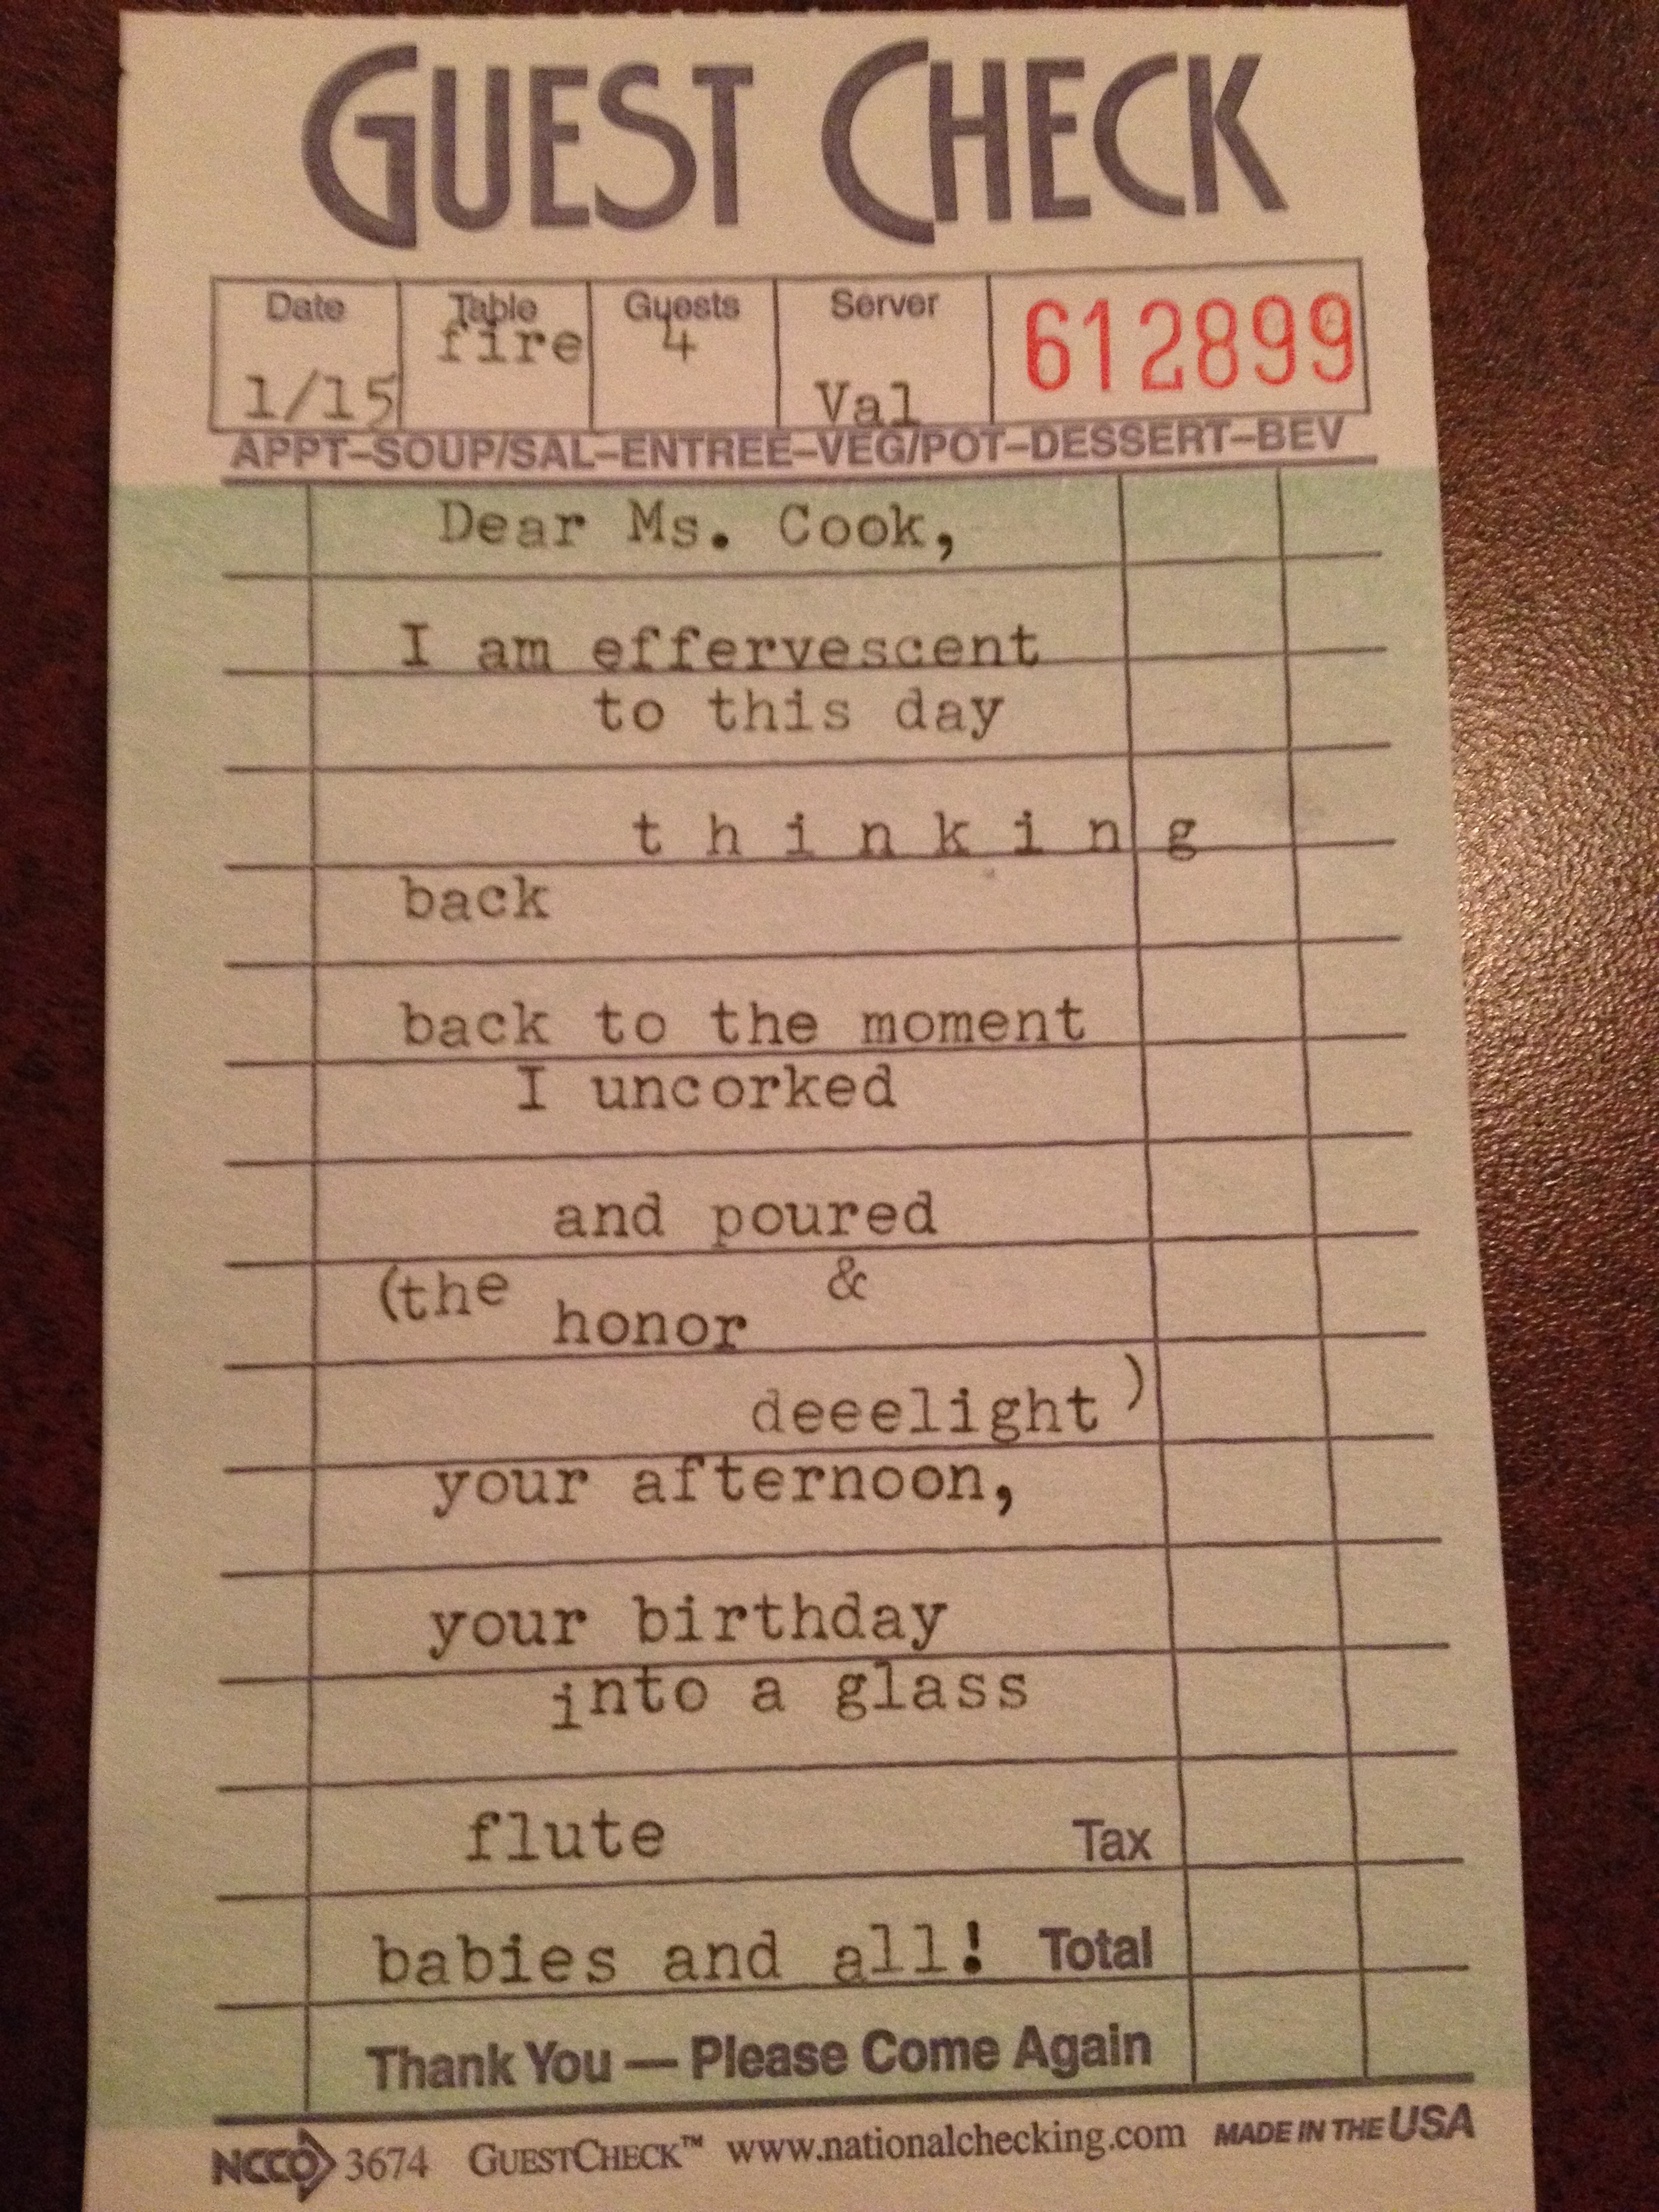 GUEST CHECK
Date Table Guests Server 612899
1/15 fire 4 Val
APPT–SOUP/SAL–ENTREE–VEG/POT–DESSERT–BEV
Dear Ms. Cook,
I am effervescent
to this day
t h i n k i n g
back
back to the moment
I uncorked
and poured
(the honor &
deeelight)
your afternoon,
your birthday
into a glass
flute Tax
babies and all! Total
Thank You — Please Come Again
NCCO 3674 GUESTCHECK™ www.nationalchecking.com MADE IN THE USA